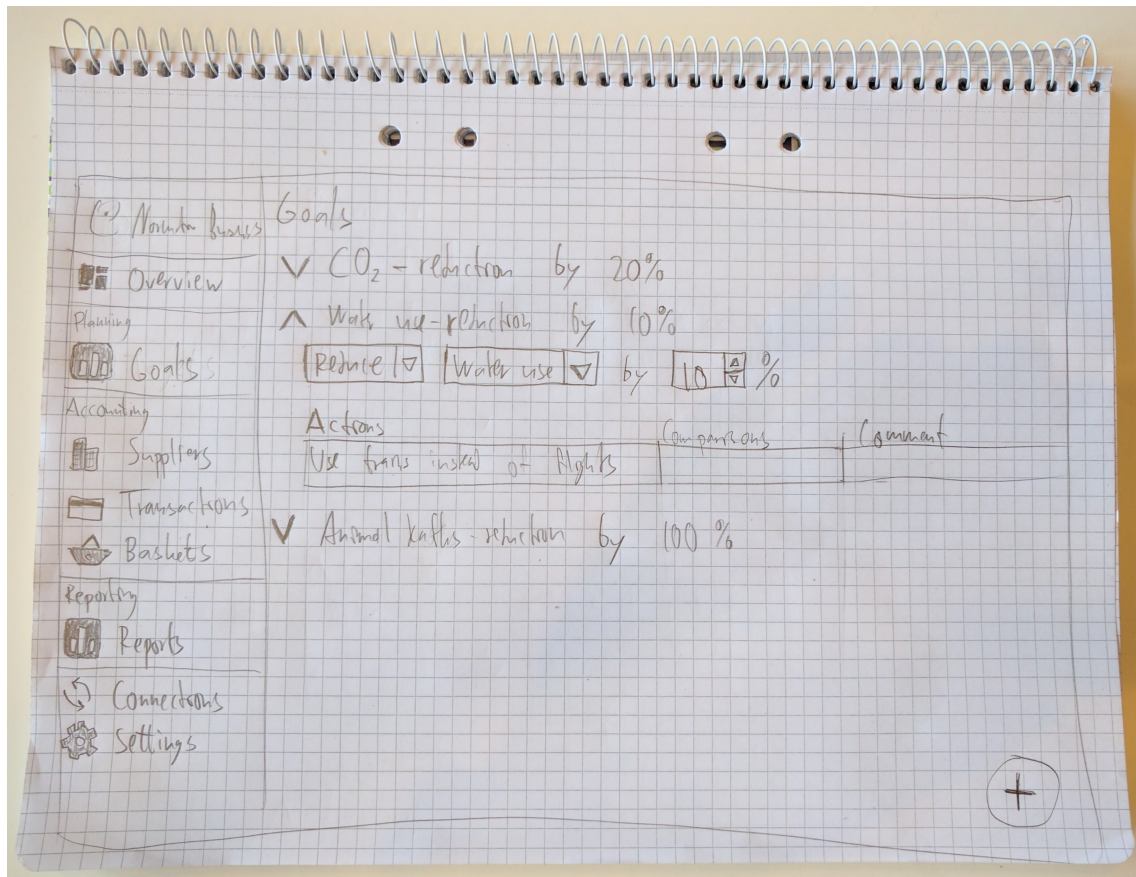 Normitan Business
Overview
Planning
Goals
Accounting
Suppliers
Transactions
Baskets
Reporting
Reports
Connections
Settings
Goals
CO₂-reduction by 20%
Water use-reduction by 10%
Reduce Water use by 10 %
Actions Comparisons Comment
Use trains instead of flights
Animal deaths-reduction by 100 %
+